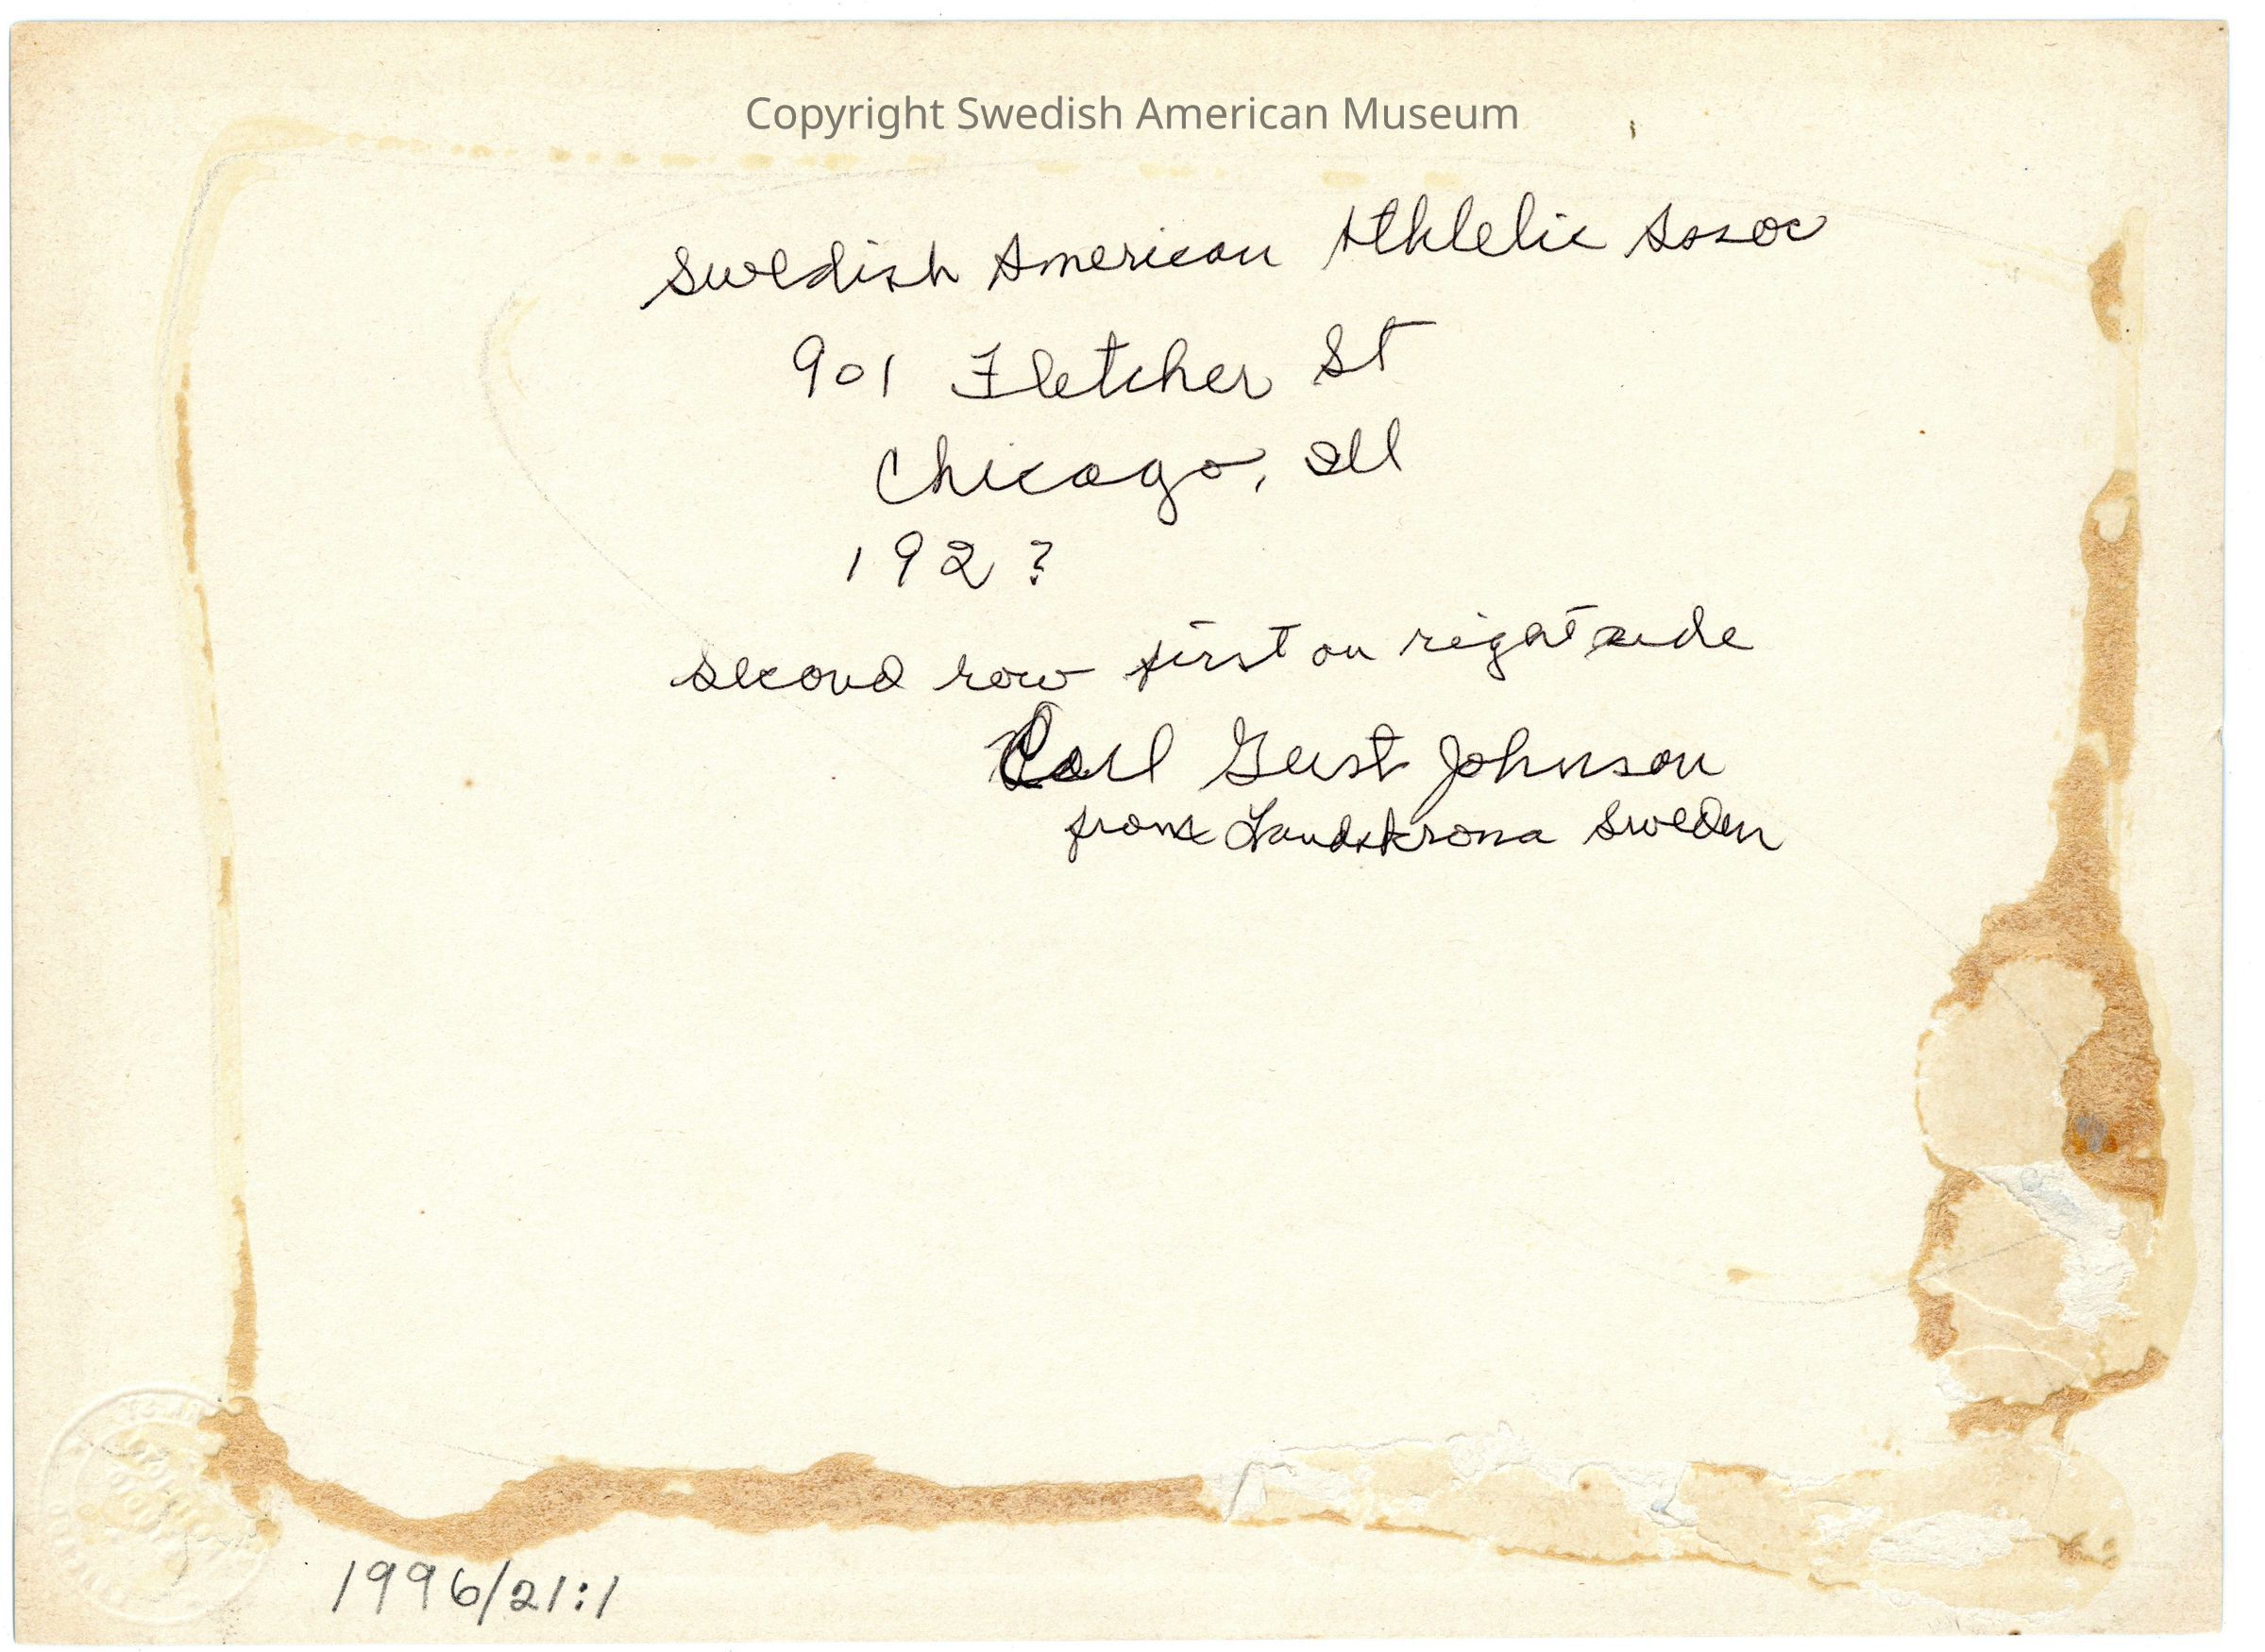 Copyright Swedish American Museum
Swedish American Athletic Assoc
901 Fletcher St
Chicago, Ill
192?
second row first on right side
Carl Gust Johnson
from Landskrona Sweden
1996/21:1